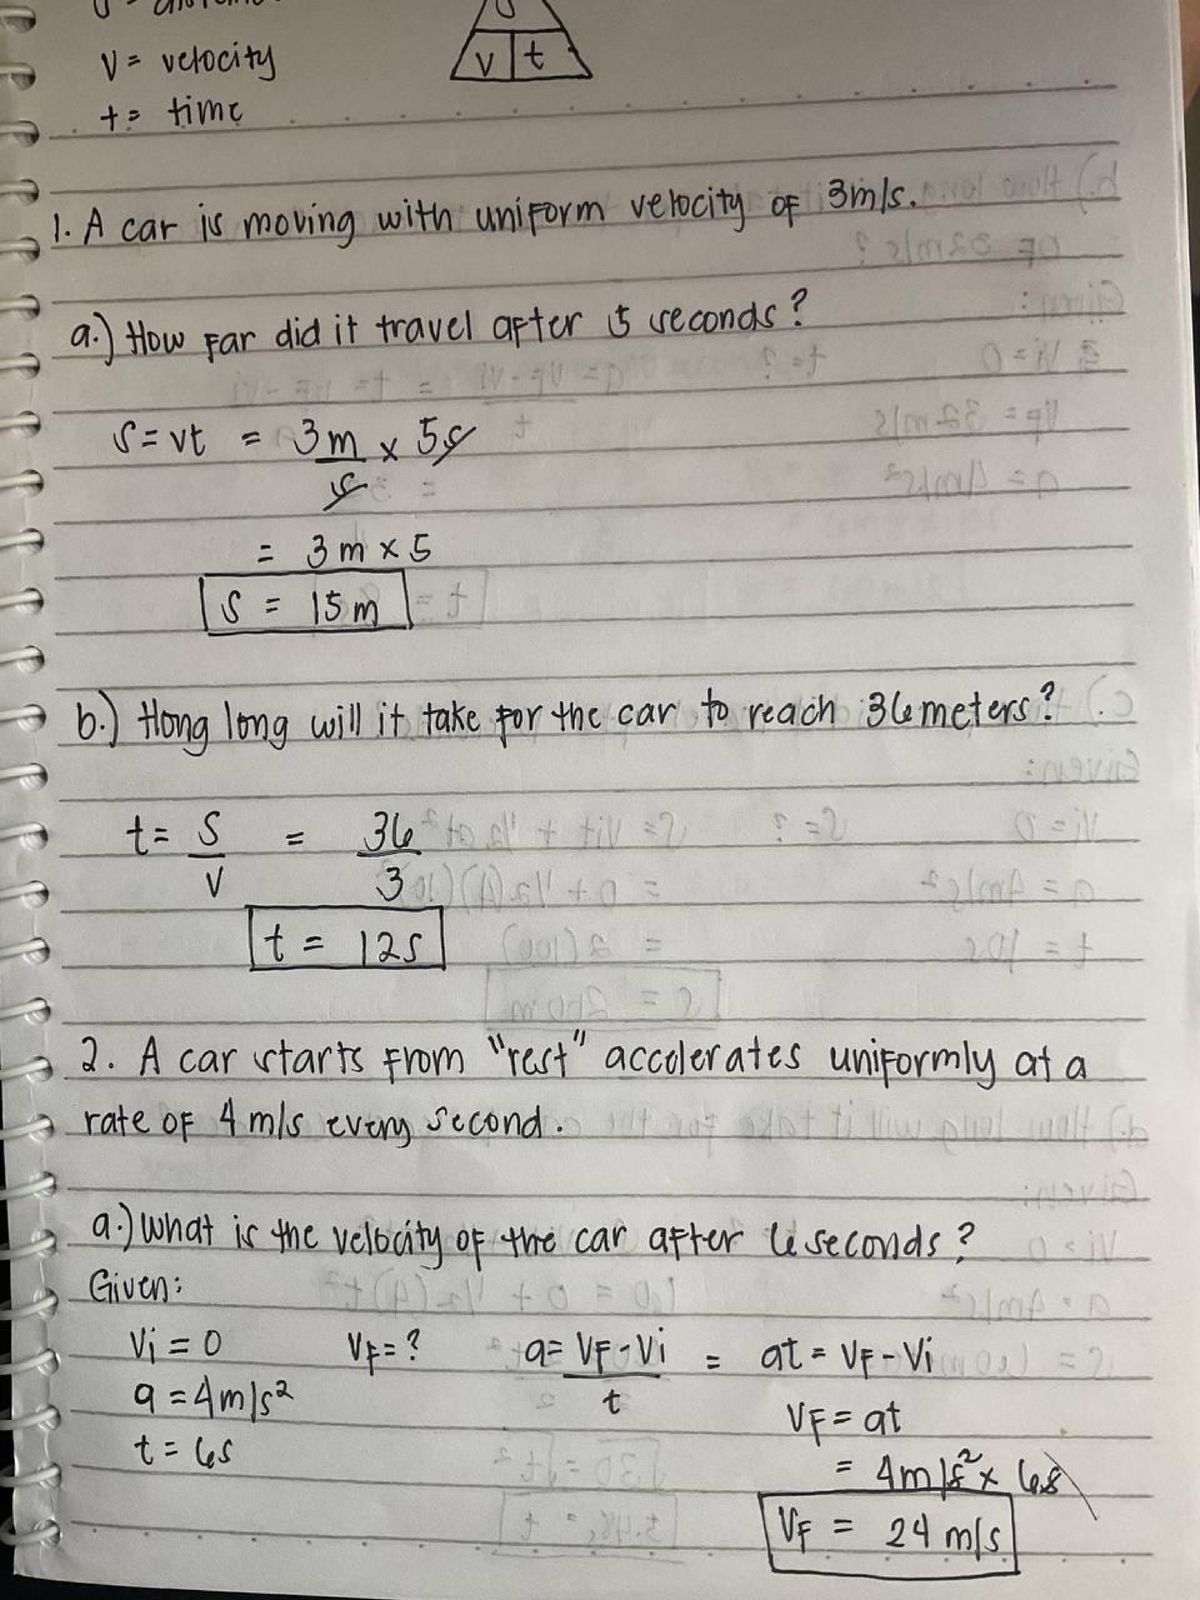 V = velocity
t = time
S
V t
1. A car is moving with uniform velocity of 3m/s.
a.) How far did it travel after 5 seconds?
S = vt = 3m/s x 5s
= 3m x 5
S = 15m
b.) Hong long will it take for the car to reach 36 meters?
t = S/V = 36/3
t = 12s
2. A car starts from "rest" accelerates uniformly at a
rate of 4 m/s every second.
a.) What is the velocity of the car after 6 seconds?
Given:
Vi = 0 VF = ? a = VF - Vi/t = at = VF - Vi
a = 4m/s² VF = at
t = 6s = 4m/s² x 6s
VF = 24 m/s